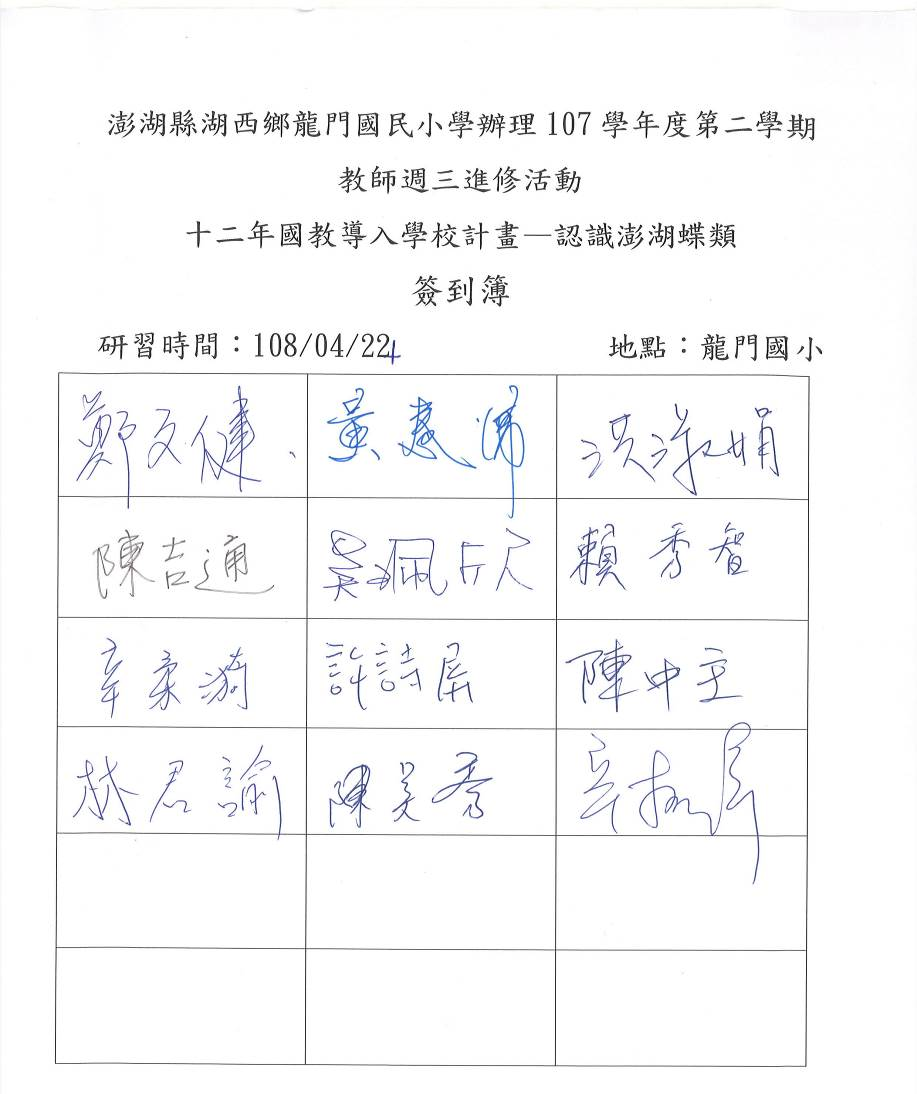 澎湖縣湖西鄉龍門國民小學辦理 107 學年度第二學期
教師週三進修活動
十二年國教導入學校計畫—認識澎湖蝶類
簽到簿
研習時間：108/04/224 地點：龍門國小
鄭文健 黃惠 洪淑娟
陳吉通 吳珮欣 賴秀智
辛柔漪 許詩屏 陳中主
林君諭 陳美秀 辛